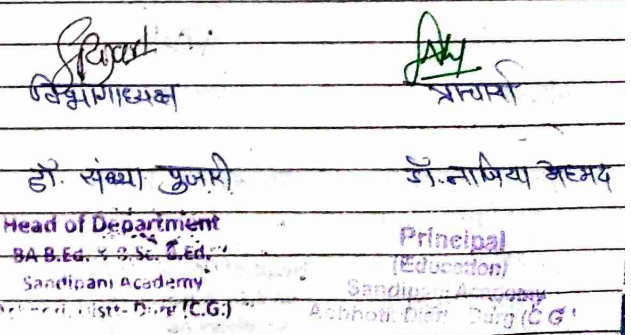 विभागाध्यक्ष
प्राचार्या
डॉ. संध्या पुजारी
डॉ. नाजिया अहमद
Head of Department
BA B.Ed. & B.Sc. B.Ed.
Sandipani Academy
Distt- Durg (C.G.)
Principal
(Education)
Sandipani Academy
Achhoti Distt Durg (C G